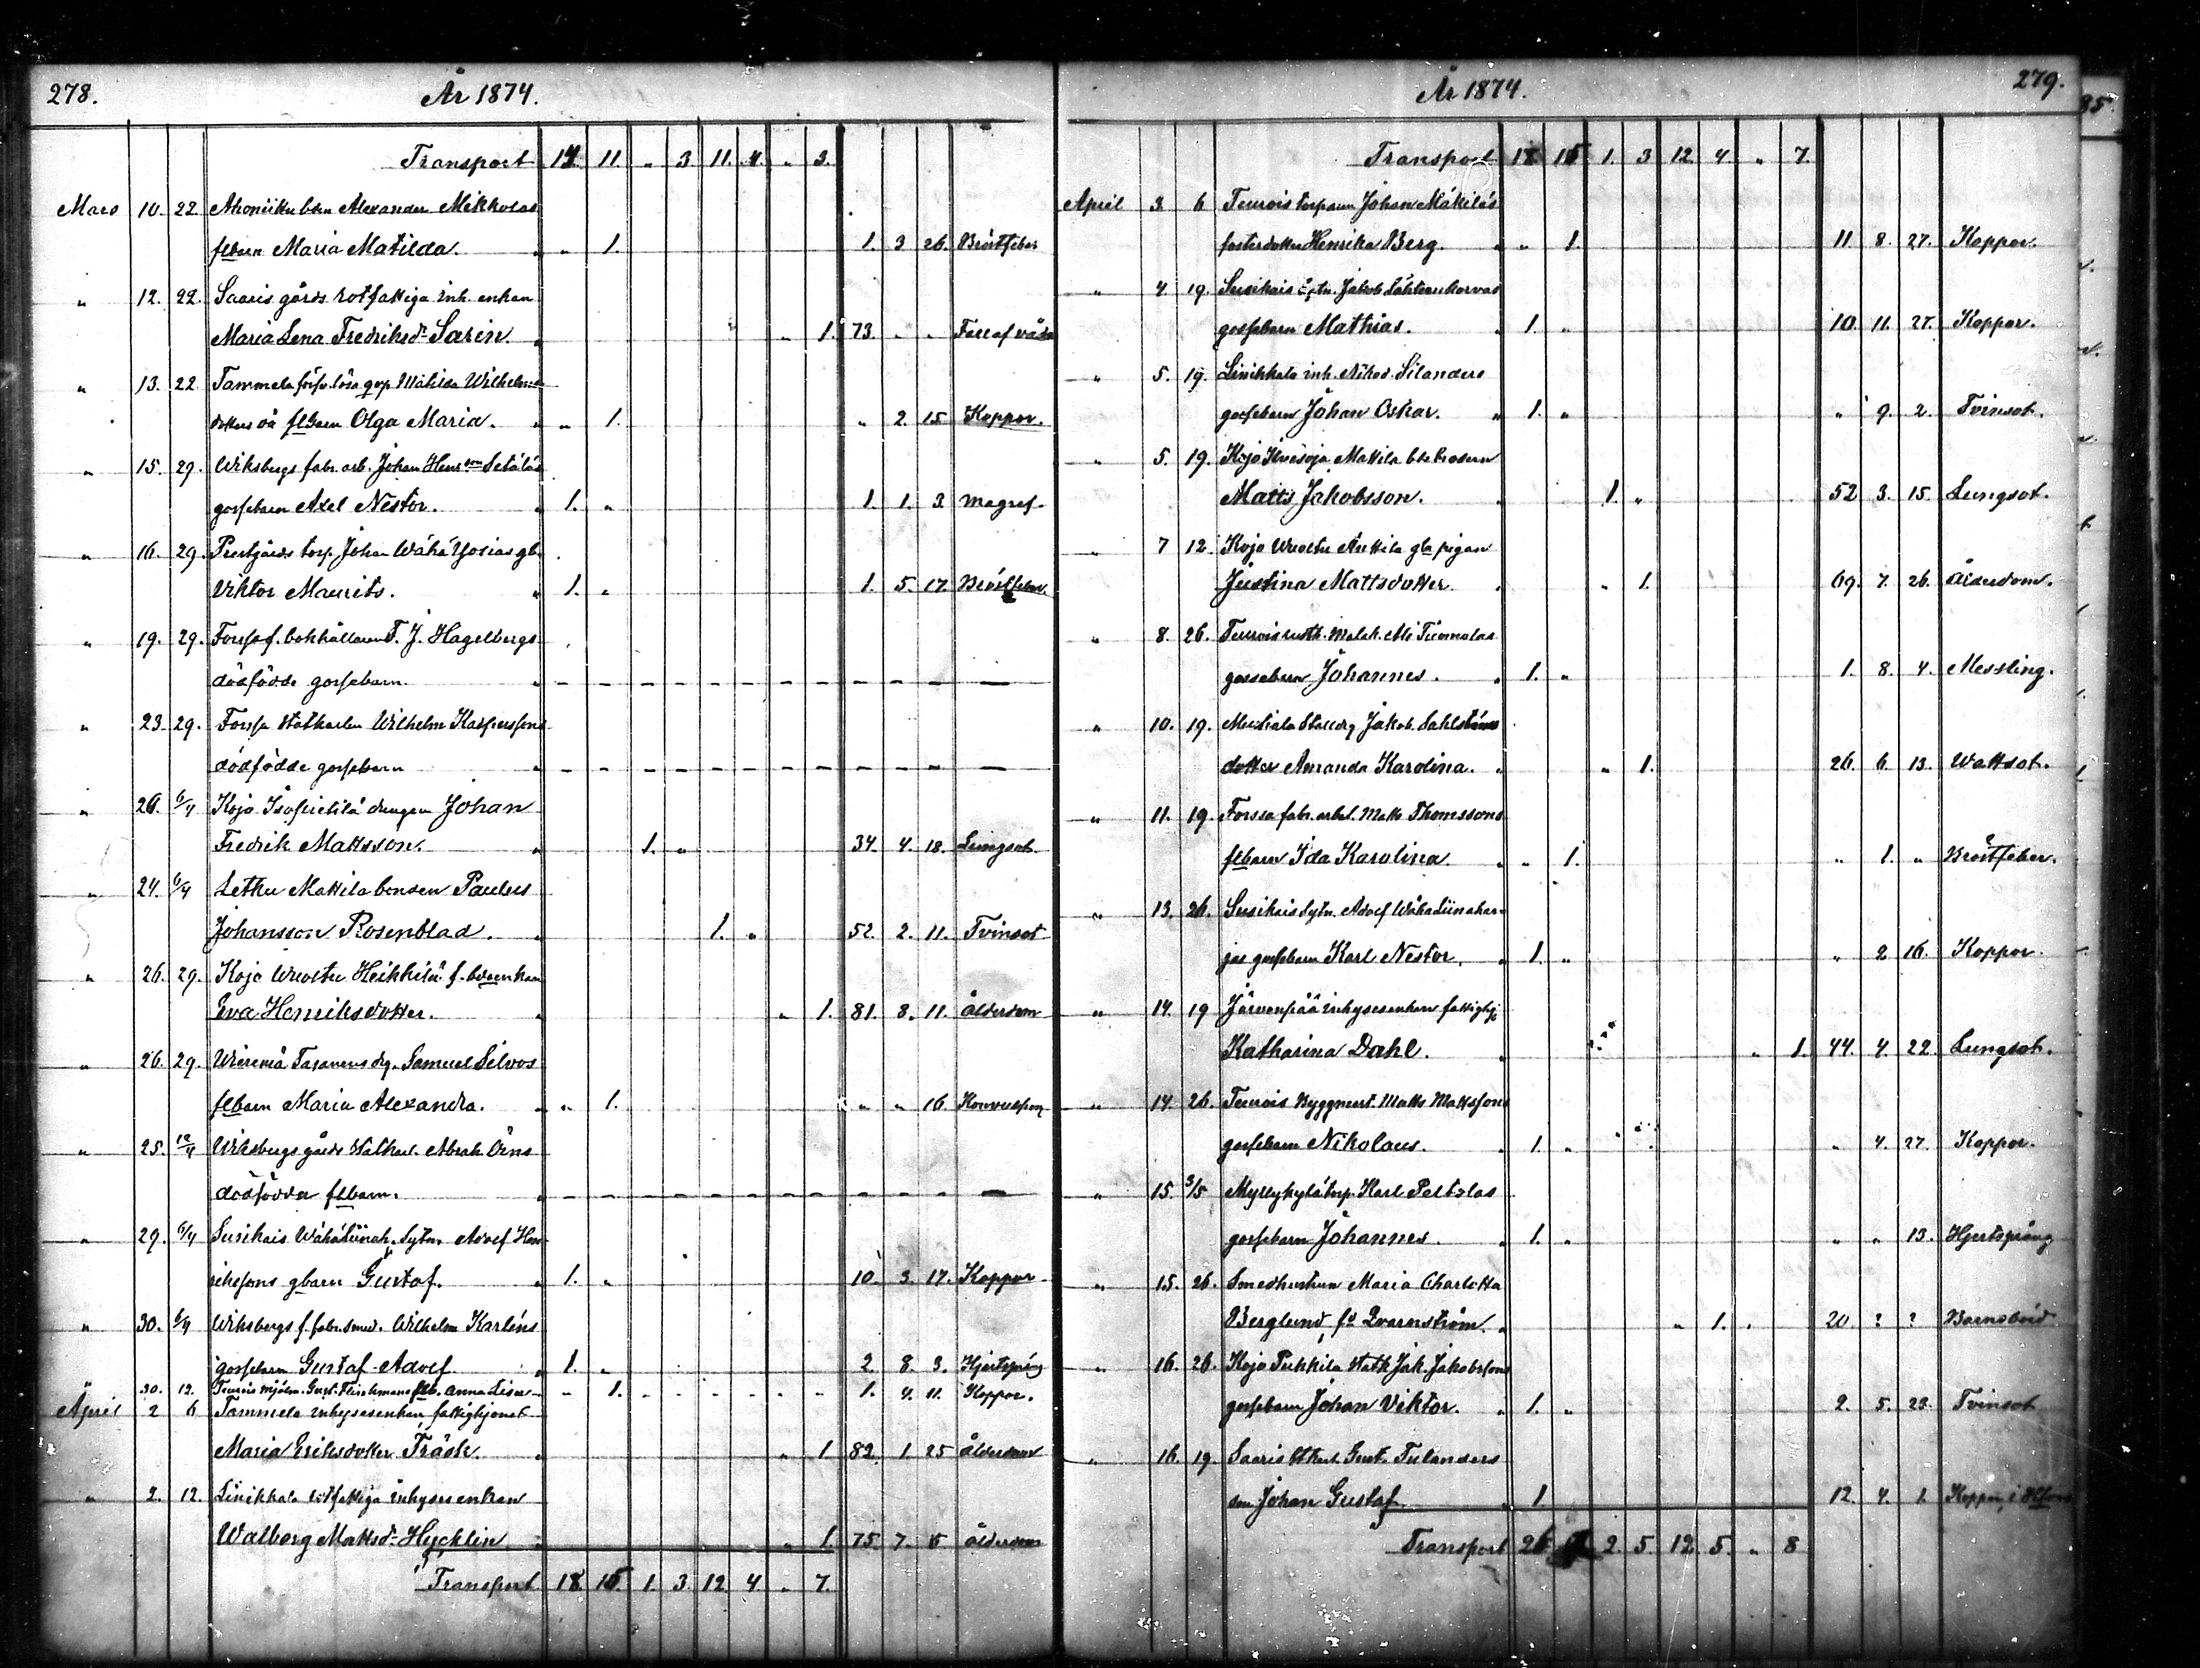 278. År 1874.
Transport 14. 11. „ 3. 11. 4. „ 3.
Mars 10. 22. Ahoniitu bdn Alexander Mikkolas
flbarn Maria Matilda. „ 1. 1. 3 26. Bröstfeber
„ 12. 22. Saaris gårds rotfattiga inh. enkan
Maria Lena Fredriksdr Sarin „ 1. 73. „ „ Fall af våda
„ 13. 22. Tammela försv. lösa qvp Matilda Wilhelms
dotters oä flbarn Olga Maria. „ 1. „ 2. 15. Koppor.
„ 15. 29. Wiksbergs fabr. arb. Johan Henrson Setäläs
gossebarn Axel Nestor. 1. „ 1. 1. 3. Magref.
„ 16. 29. Prestgårds torp. Johan Wähä Yosias gb.
Viktor Maurits. 1. „ 1. 5. 17. Bröstfeber
„ 19. 29. Forssa f. bokhållaren F. J. Hagelbergs
dödfödde gossebarn. – – – – – – – – – – – –
„ 23. 29. Forssa statkarlen Wilhelm Kaspersson
dödfödde gossebarn – – – – – – – – – – – –
„ 26. 6/4 Kojo Isopietilä drengen Johan
Fredrik Mattsson. 1. „ 34. 4. 18. Lungsot
„ 24. 6/4 Letku Mattila bonden Paulus
Johansson Rosenblad. 1. „ 52. 2. 11. Tvinsot
„ 26. 29. Kojo Wuoltu Heikkilä f. bdeenkan
Eva Henriksdotter. „ 1. 81. 8. 11. Ålderdom
„ 26. 29. Tasanens drg. Samuel Silvos
flbarn Maria Alexandra. „ 1. „ „ 16. Konvulsion
„ 25. 12/4 Wiksbergs gårds statkarl. Abrah. Örns
dödfödda flbarn. – – – – – – – – – – – –
„ 29. 6/4 Susikais Sytn. Adolf Hen
rikssons gbarn Gustaf. 1. „ 10. 3. 17. Koppor
„ 30. 6/4 Wiksbergs f. fabr. smed. Wilhelm Karléns
gossebarn Gustaf Adolf 1. „ 2. 8. 3. Hjertspång
„ 30. 12. Teurois mjöln. Gust. Flinkmans flb. Anna Lisa – 1. – – – – – – 1. 4. 11. Koppor.
April 2 6 Tammela inhysesenkan fattighjonet
Maria Eriksdotter Träsk. „ 1. 82. 1. 25 Ålderdom
„ 2. 12. Liinikkala rotfattiga inhysesenkan
Walborg Mattsdr Hycklin „ 1. 75. 7. 6 Ålderdom
Transport 18. 15. 1. 3. 12. 4. „ 7.
År 1874. 279.
Transport 18 15 1. 3 12. 4 „ 7.
April 3. 6 Teurois torparn Johan Mäkiläs
fosterdotter Henrika Berg. „ 1. 11. 8. 27. Koppor.
„ 4 19. Susikais Jakob Lähteenkorvas
gossebarn Mathias. 1. „ 10. 11. 27. Koppor.
„ 5. 19. Liinikkala inh. Nikod. Silanders
gossebarn Johan Oskar. 1. „ „ 9. 2. Tvinsot.
„ 5. 19. Kojo Mattila bdebrodern
Matts Jakobsson. 1. „ 52. 3. 15. Lungsot.
„ 7 12. Kojo Wuoltu Anttila gla pigan
Justina Mattsdotter. „ 1. 69. 7. 26. Ålderdom.
„ 8. 26. Teurois rusth. Malak. Ali Tiinnalas
gossebarn Johannes. 1. „ 1. 8. 4. Messling.
„ 10. 19. Mustiala Statdrg Jakob Sahlströms
dotter Amanda Karolina. „ 1. 26. 6. 13. Wattsot.
„ 11. 19. Forssa fabr. arbet. Matts Thomssons
flbarn Ida Karolina „ 1. „ 1. „ Bröstfeber.
„ 13. 26. Susikais Sytn. Adolf Wähäliinahar-
jas gossebarn Karl Nestor. 1. „ „ 2 16. Koppor.
„ 14. 19 Järvenpää inhysesenkan fattighj.
Katharina Dahl. „ 1. 44. 4. 22. Lungsot.
„ 14. 26. Teurois Byggmest. Matts Mattsson
gossebarn Nikolaus. 1. „ „ 4. 27. Koppor.
„ 15. 3/5 Myllykylä torp. Karl Peltolas
gossebarn Johannes. 1. „ „ „ 13. Hjertspång
„ 15. 26. Smedhustrun Maria Charlotta
Berglund, fd Qvarnström. „ 1. 20. ? ? Barnsbörd
„ 16. 26. Kojo Pukkila statk. Jak. Jakobssons
gossebarn Johan Viktor. 1. „ 2. 5. 22. Tvinsot
„ 16. 19. Saaris stkarl Gust. Tulanders
son Johan Gustaf 1. 12. 4. 1. Koppor, i Hfors
Transport 26 2. 5. 12. 5. „ 8
35.